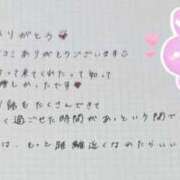 りがとう
ありがとうございます
って来てくれたって知って
しかったです
り話もたくさんできて
く過ごせた時間があっという間で
は、もっと距離近くなのたらいい